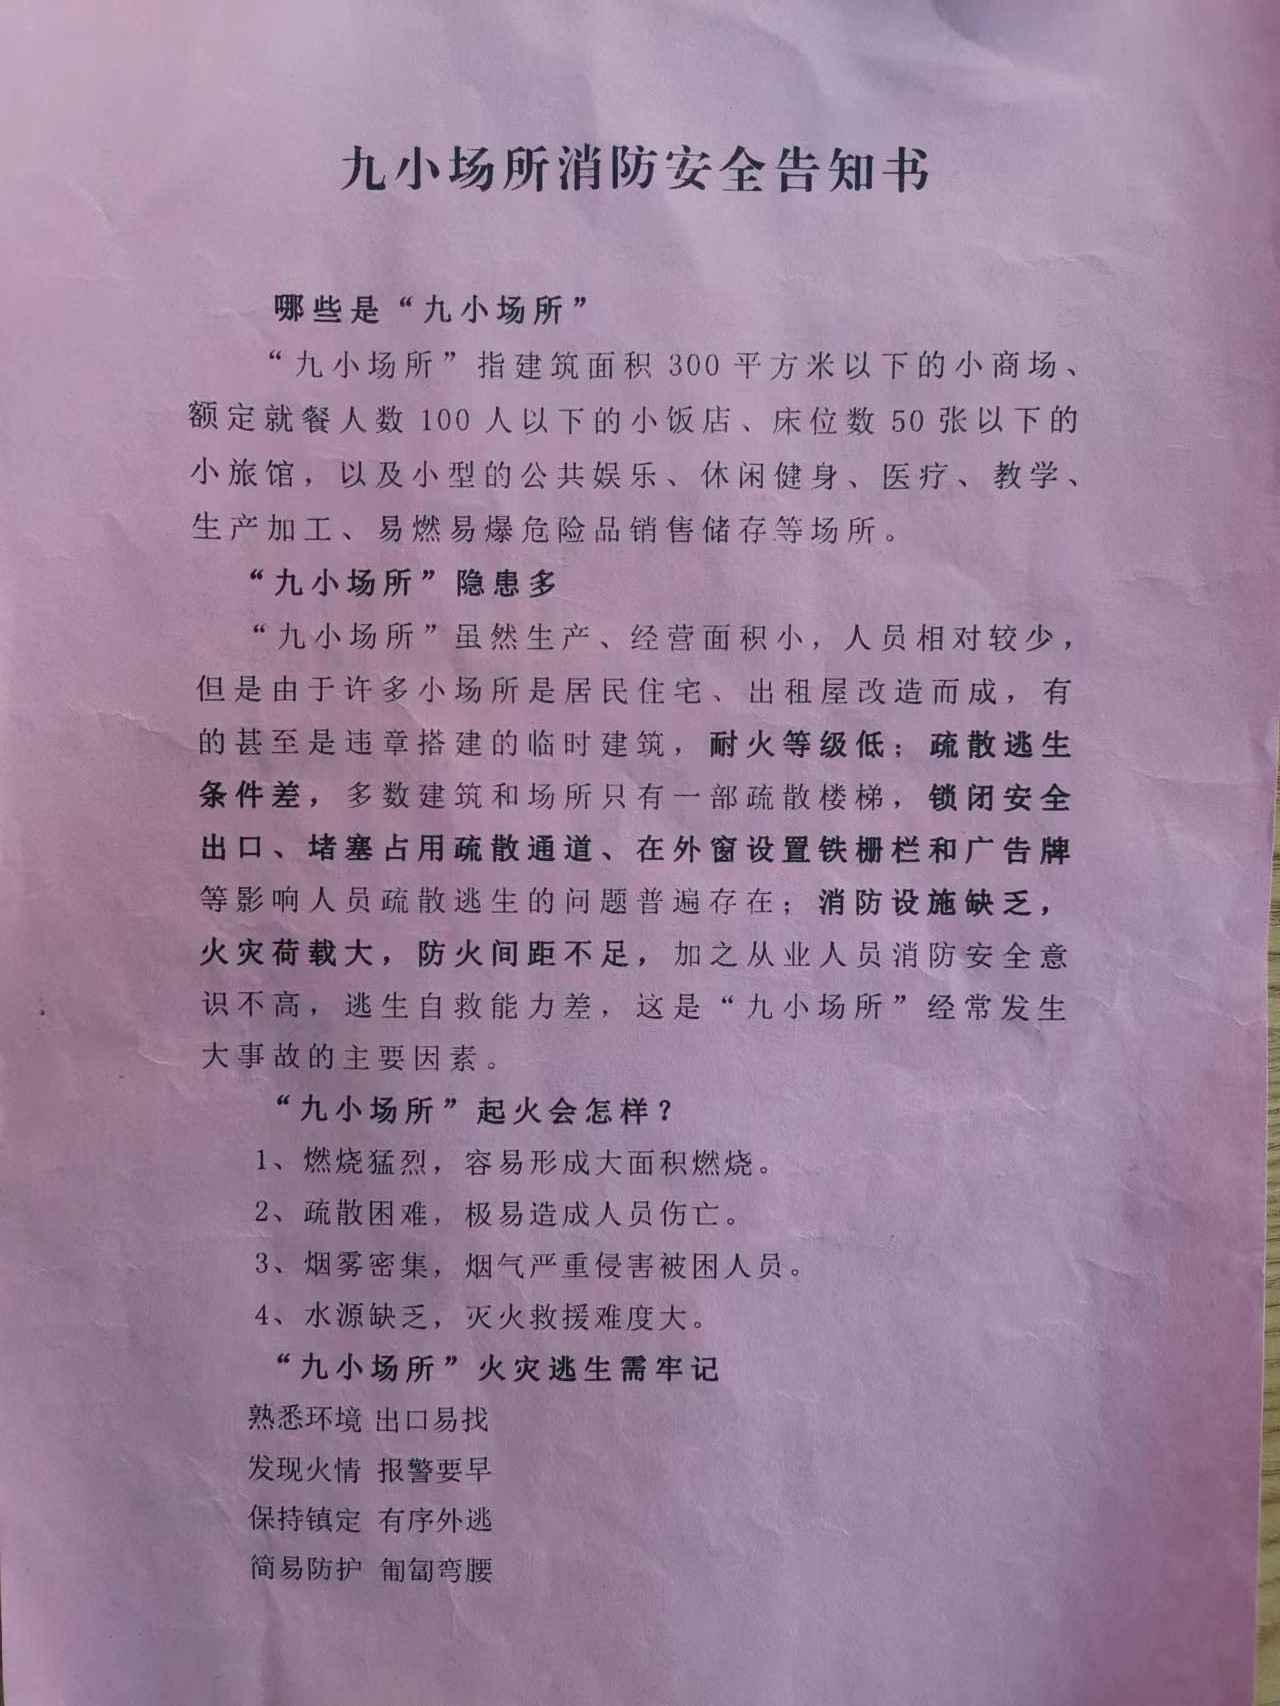 九小场所消防安全告知书
哪些是“九小场所”
“九小场所”指建筑面积 300 平方米以下的小商场、
额定就餐人数 100 人以下的小饭店、床位数 50 张以下的
小旅馆，以及小型的公共娱乐、休闲健身、医疗、教学、
生产加工、易燃易爆危险品销售储存等场所。
“九小场所”隐患多
“九小场所”虽然生产、经营面积小，人员相对较少，
但是由于许多小场所是居民住宅、出租屋改造而成，有
的甚至是违章搭建的临时建筑，耐火等级低；疏散逃生
条件差，多数建筑和场所只有一部疏散楼梯，锁闭安全
出口、堵塞占用疏散通道、在外窗设置铁栅栏和广告牌
等影响人员疏散逃生的问题普遍存在；消防设施缺乏，
火灾荷载大，防火间距不足，加之从业人员消防安全意
识不高，逃生自救能力差，这是“九小场所”经常发生
大事故的主要因素。
“九小场所”起火会怎样？
1、燃烧猛烈，容易形成大面积燃烧。
2、疏散困难，极易造成人员伤亡。
3、烟雾密集，烟气严重侵害被困人员。
4、水源缺乏，灭火救援难度大。
“九小场所”火灾逃生需牢记
熟悉环境 出口易找
发现火情 报警要早
保持镇定 有序外逃
简易防护 匍匐弯腰